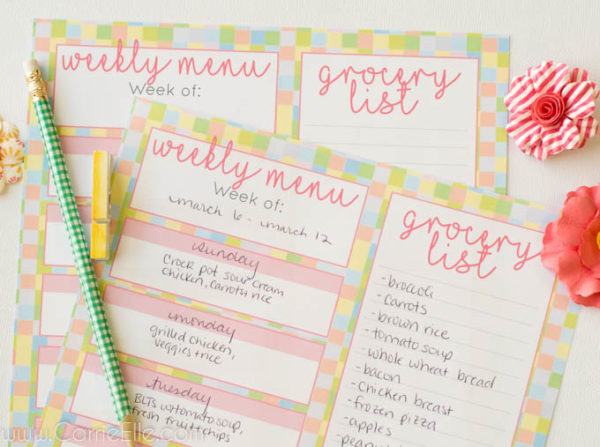 weekly menu
Week of:
grocery
list
weekly menu
Week of:
march 6 - march 12
sunday
Crock pot sour cream
chicken, carrots rice
monday
grilled chicken,
veggies + rice
tuesday
BLTS w/tomato soup,
fresh fruit, chips
grocery
list
-broccoli
-carrots
-brown rice
-tomato soup
-whole wheat bread
-bacon
-chicken breast
-frozen pizza
-apples
www.CorrieElle.com